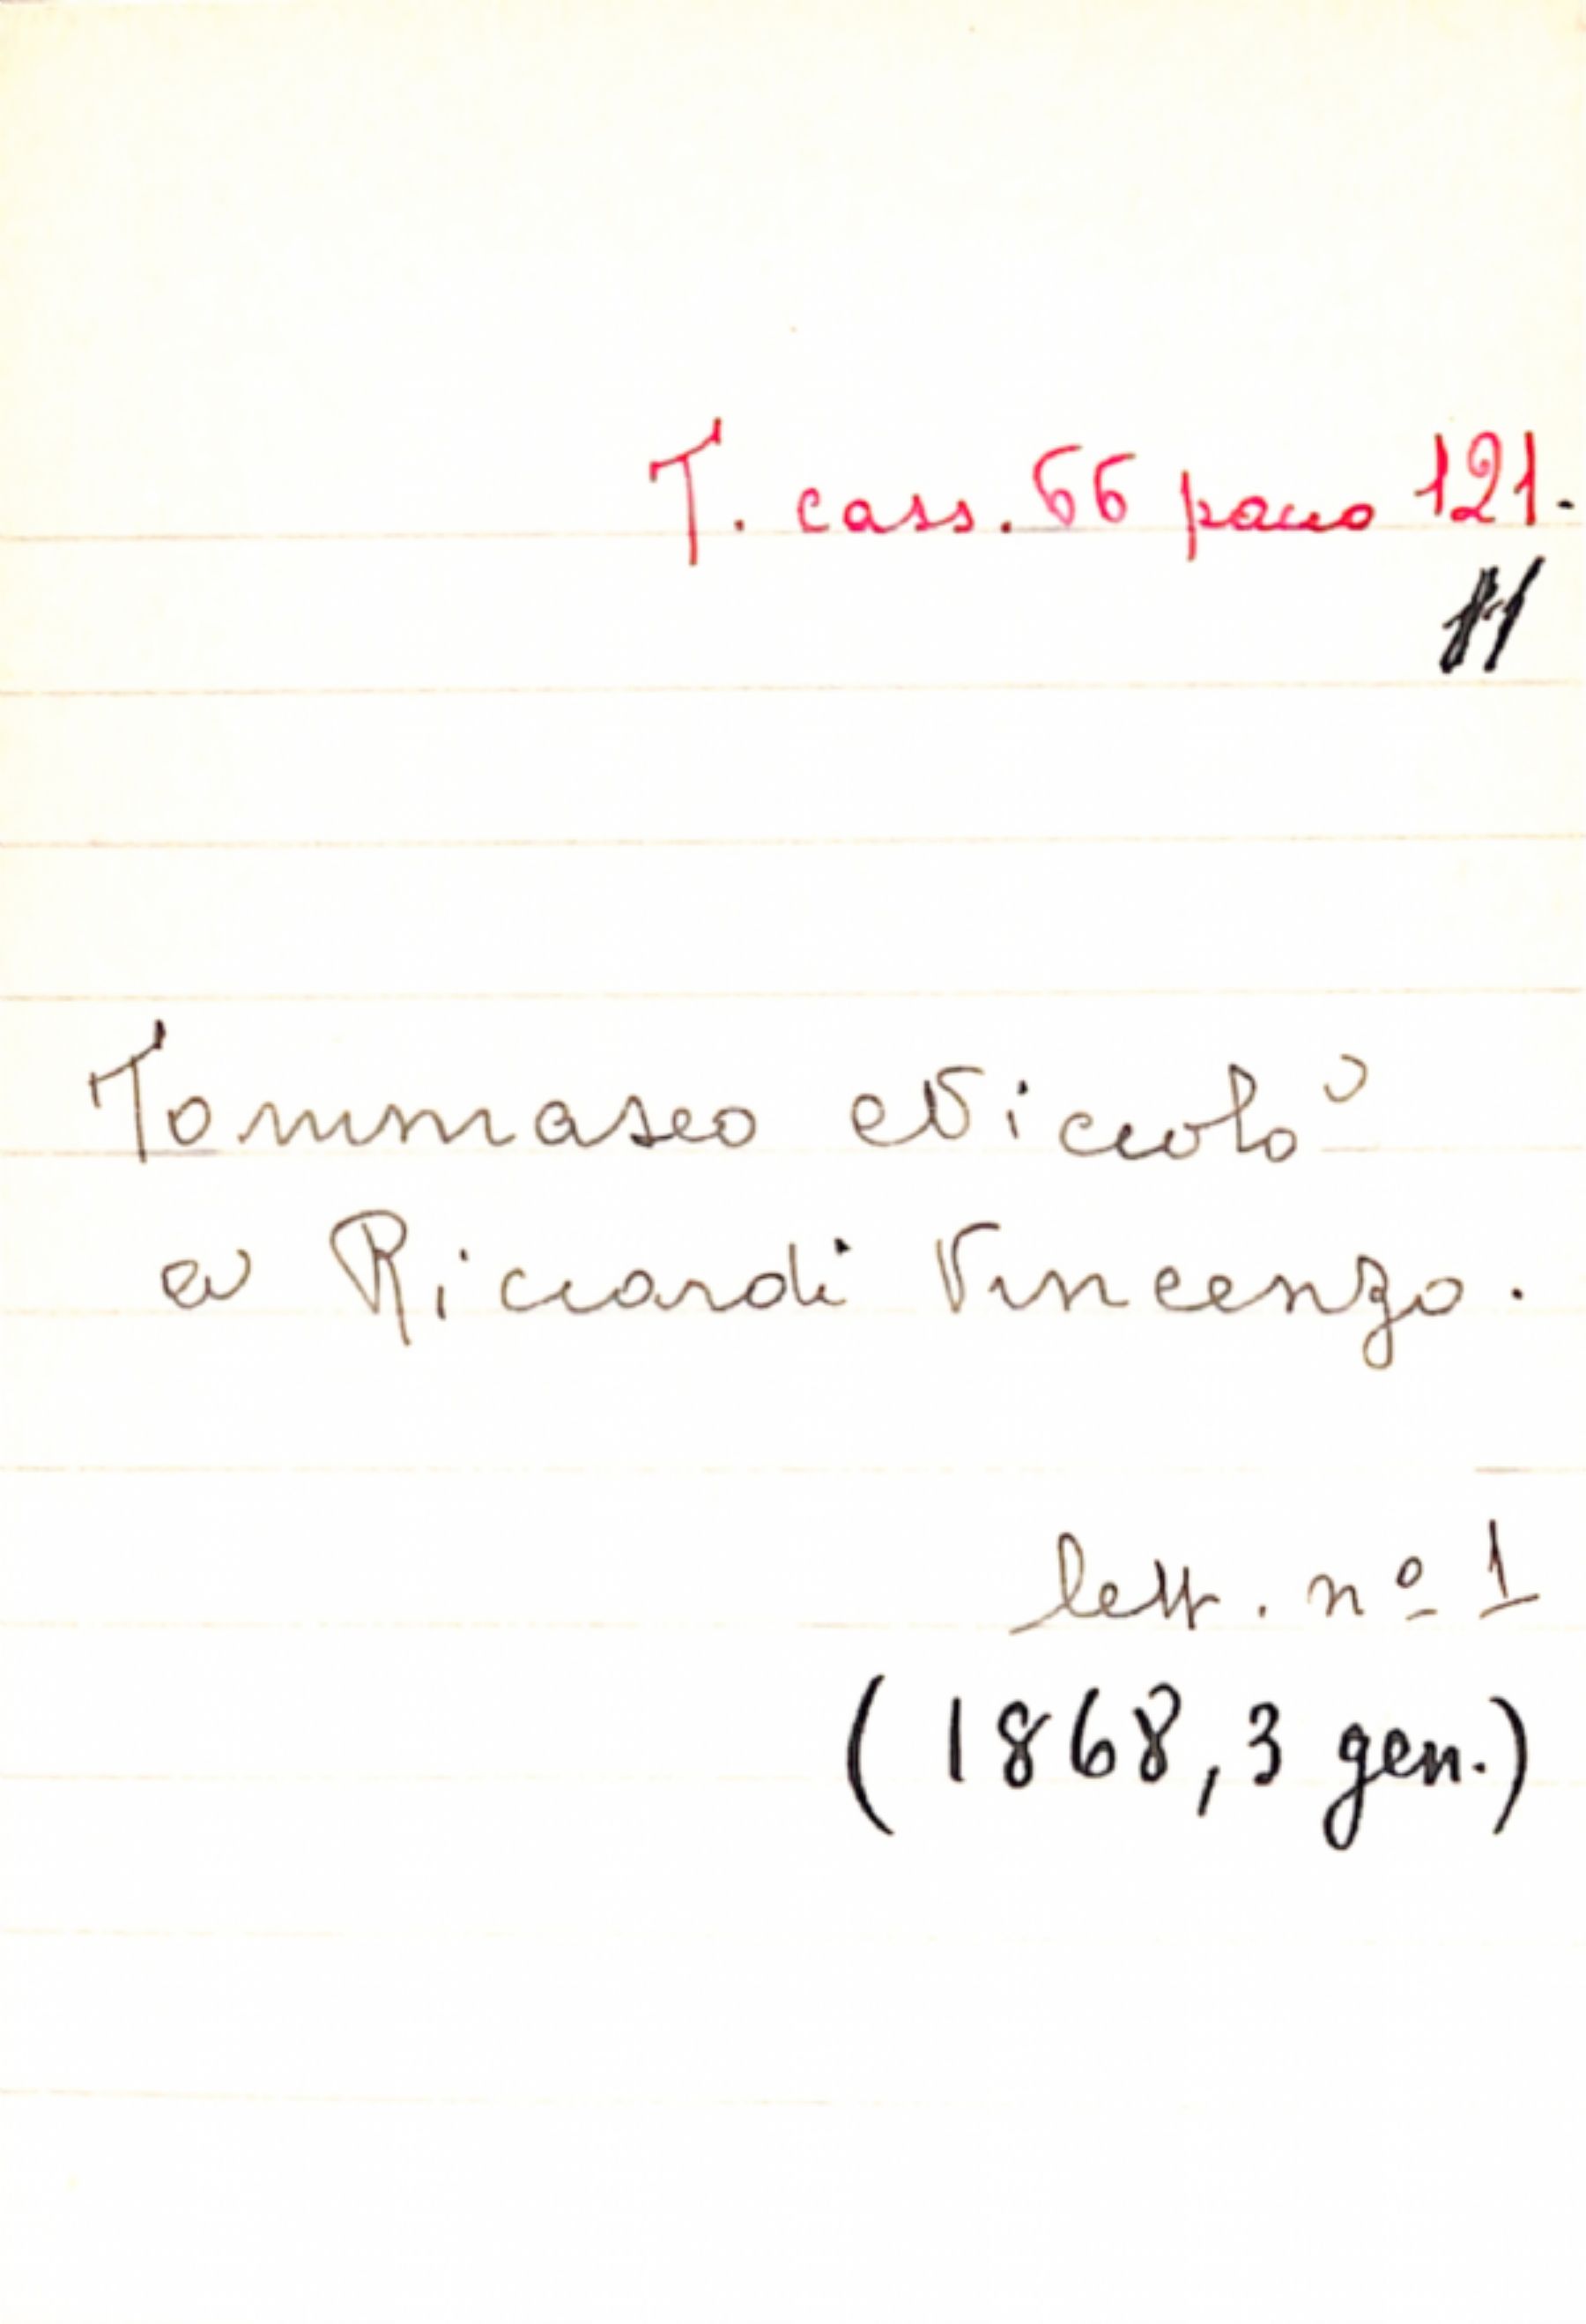 T. cass. 66 pacco 121.
11
Tommaseo Niccolò
a Riccardi Vincenzo.
lett. nº 1
(1868, 3 gen.)